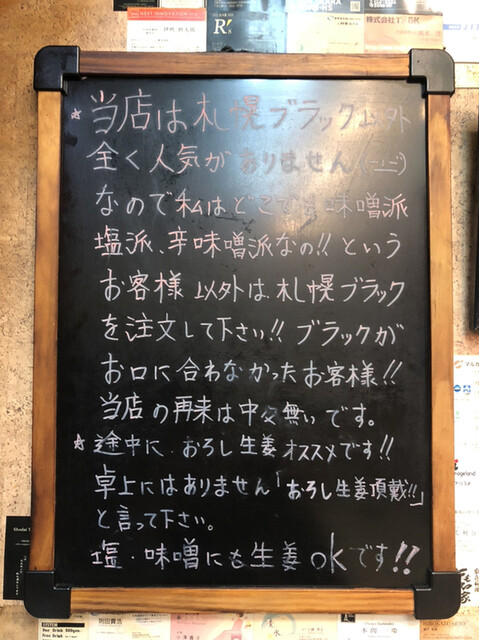 ☆当店は札幌ブラック以外
全く人気がありません
なので私はどこでも味噌派
塩派、辛味噌派なの!!という
お客様以外は、札幌ブラック
を注文して下さい!!ブラックが
お口に合わなかったお客様!!
当店の再来は中々無いです。
☆途中に、おろし生姜オススメです!!
卓上にはありません「おろし生姜頂戴!!」
と言って下さい。
塩・味噌にも生姜okです!!
R's
株式会社